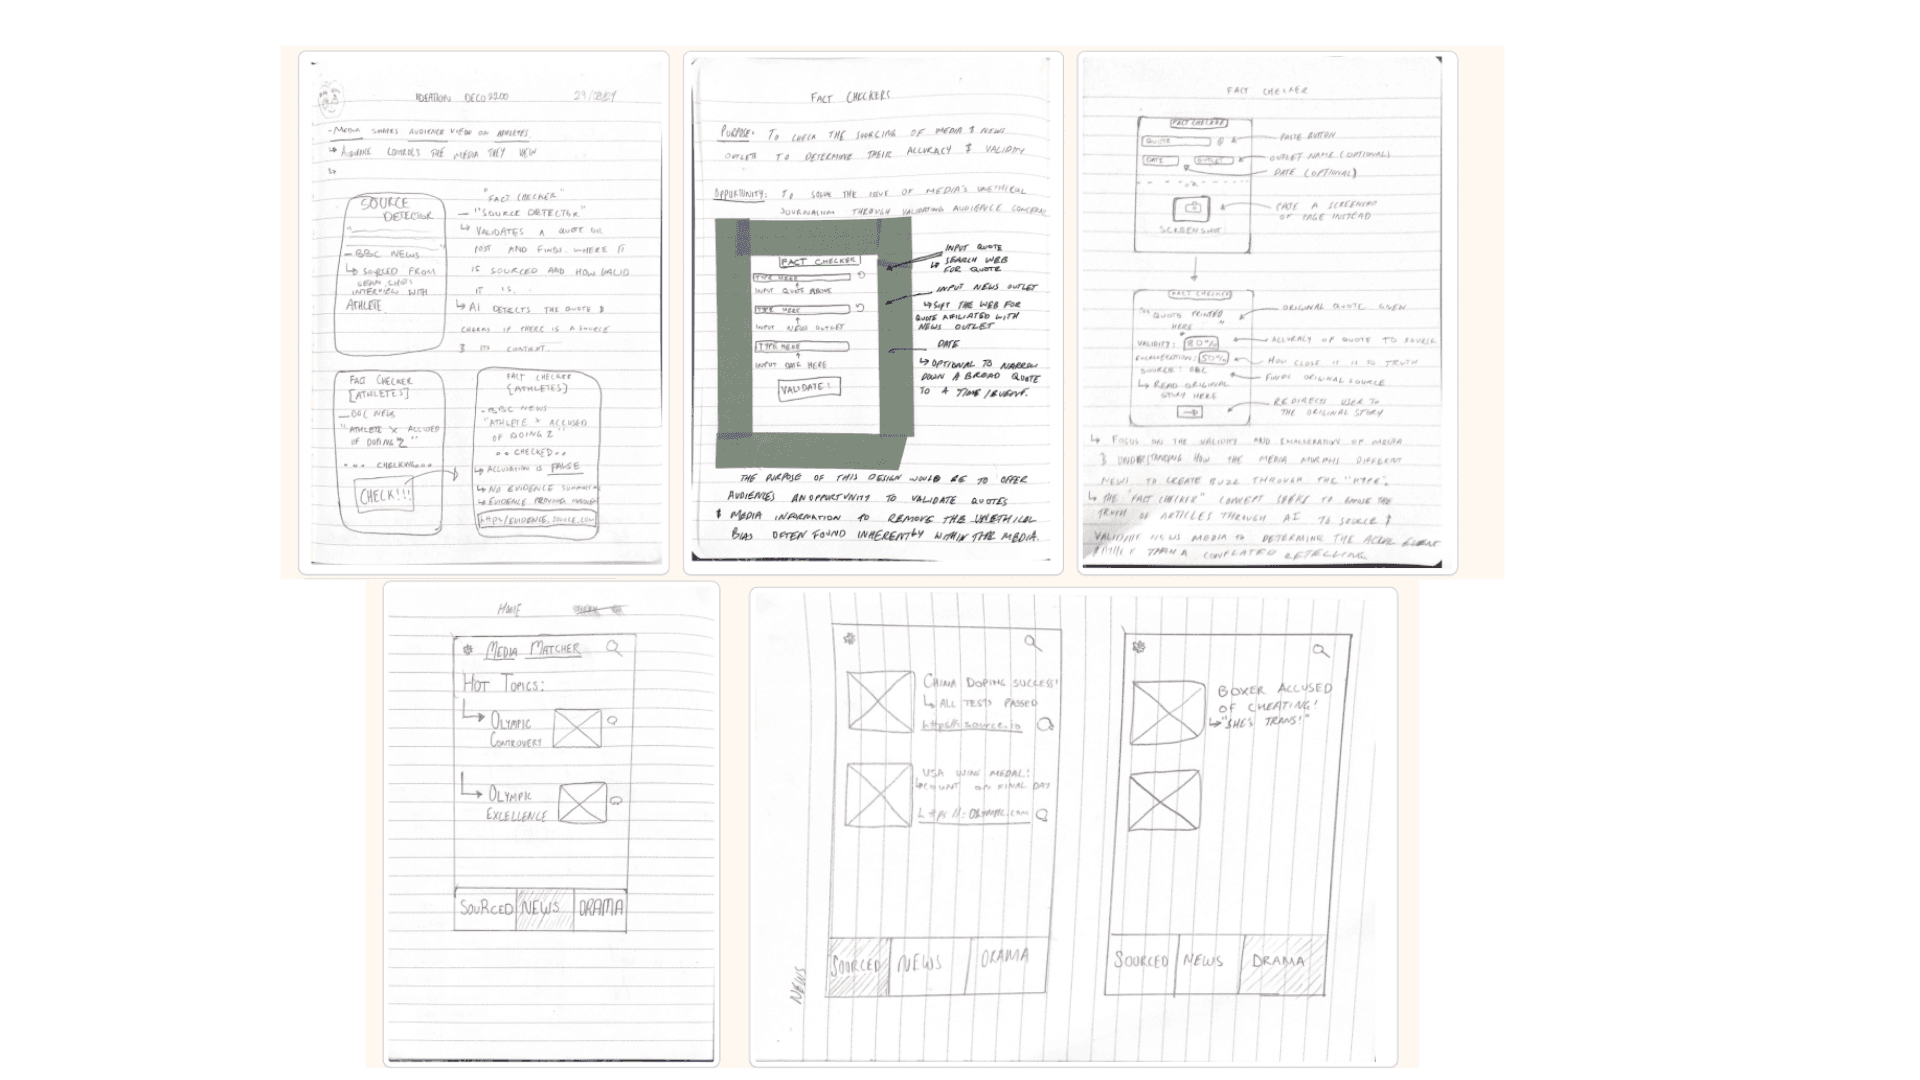 IDEATION DECO2200
- MEDIA SHAPES AUDIENCE VIEW ON ATHLETES
↳ AUDIENCE CONTROLS THE MEDIA THEY VIEW
↳
SOURCE
DETECTOR
- BBC NEWS
↳ SOURCED FROM
INTERVIEW WITH
ATHLETE
"FACT CHECKER"
- "SOURCE DETECTOR"
↳ VALIDATES A QUOTE OR
POST AND FINDS WHERE IT
IS SOURCED AND HOW VALID
IT IS.
↳ AI DETECTS THE QUOTE &
CHECKS IF THERE IS A SOURCE
& ITS CONTEXT.
FACT CHECKER
[ATHLETES]
- BBC NEWS
"ATHLETE X ACCUSED
OF DOING Z"
... CHECKING...
CHECK!!!
FACT CHECKER
[ATHLETES]
- BBC NEWS
"ATHLETE X ACCUSED
OF DOING Z"
.. CHECKED..
↳ ACCUSATION IS FALSE
↳ NO EVIDENCE
↳ EVIDENCE PROVING
https/EVIDENCE.SOURCE.COM
FACT CHECKERS
PURPOSE: TO CHECK THE SOURCING OF MEDIA & NEWS
OUTLETS TO DETERMINE THEIR ACCURACY & VALIDITY
OPPORTUNITY: TO SOLVE THE ISSUE OF MEDIA'S UNETHICAL
JOURNALISM THROUGH VALIDATING AUDIENCE CONCERNS
FACT CHECKER
TYPE HERE
INPUT QUOTE ABOVE
TYPE HERE
INPUT NEWS OUTLET
TYPE HERE
INPUT DATE HERE
VALIDATE!
INPUT QUOTE
↳ SEARCH WEB
FOR QUOTE
INPUT NEWS OUTLET
↳ SIFT THE WEB FOR
QUOTE AFILIATED WITH
NEWS OUTLET
DATE
↳ OPTIONAL TO NARROW
DOWN A BROAD QUOTE
TO A TIME/EVENT.
THE PURPOSE OF THIS DESIGN WOULD BE TO OFFER
AUDIENCES AN OPPORTUNITY TO VALIDATE QUOTES
& MEDIA INFORMATION TO REMOVE THE UNETHICAL
BIAS OFTEN FOUND INHERENTLY WITHIN THE MEDIA.
FACT CHECKER
FACT CHECKER
QUOTE
DATE OUTLET
-OR-
SCREENSHOT
PASTE BUTTON
OUTLET NAME (OPTIONAL)
DATE (OPTIONAL)
PASTE A SCREENSHOT
OF PAGE INSTEAD
FACT CHECKER
"QUOTE PRINTED
HERE"
VALIDITY: 80%
EXAGGERATION: 50%
SOURCE: BBC
↳ READ ORIGINAL
STORY HERE
ORIGINAL QUOTE GIVEN
ACCURACY OF QUOTE TO SOURCE
HOW CLOSE IT IS TO TRUTH
FINDS ORIGINAL SOURCE
REDIRECTS USER TO
THE ORIGINAL STORY
↳ FOCUS ON THE VALIDITY AND EXAGGERATION OF MEDIA
& UNDERSTANDING HOW THE MEDIA MORPHS DIFFERENT
NEWS TO CREATE BUZZ THROUGH THE "HYPE".
↳ THE "FACT CHECKER" CONCEPT SEEKS TO THE
TRUTH OF ARTICLES THROUGH AI TO SOURCE &
VALIDATE NEWS MEDIA TO DETERMINE THE EVENT
THAN A CONFLATED RETELLING.
HOME
MEDIA MATCHER
HOT TOPICS:
↳ OLYMPIC
CONTROVERY
↳ OLYMPIC
EXCELLENCE
SOURCED NEWS DRAMA
NEWS
CHINA DOPING SUCCESS!
↳ ALL TESTS PASSED
https://source.io
USA WINS MEDAL!
↳ COUNT ON FINAL DAY
https://:OLYMPIC.com
SOURCED NEWS DRAMA
BOXER ACCUSED
OF CHEATING!
↳ "SHE'S TRANS!"
SOURCED NEWS DRAMA